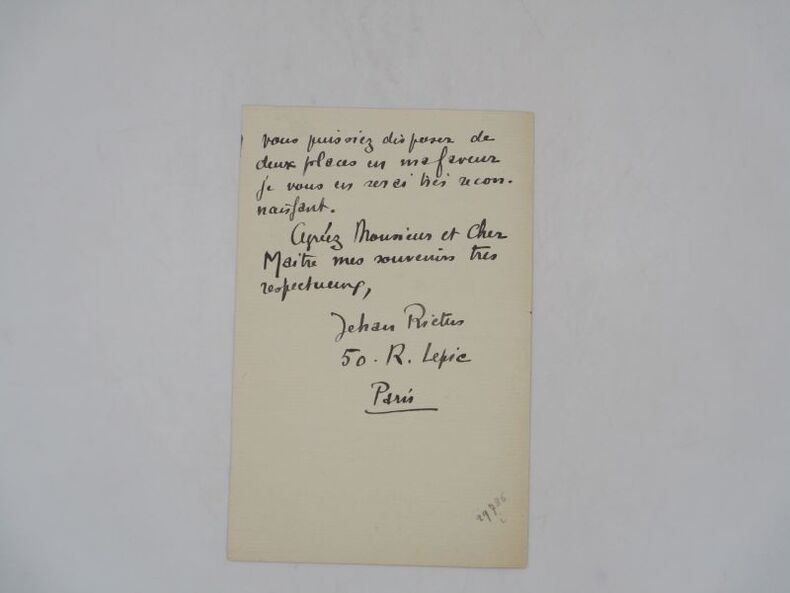 vous puissiez disposer de
deux places en ma faveur
je vous en serai très recon-
naissant.
Agréez Monsieur et Cher
Maitre mes souvenirs très
respectueux,
Jehan Rictus
50. R. Lepic
Paris